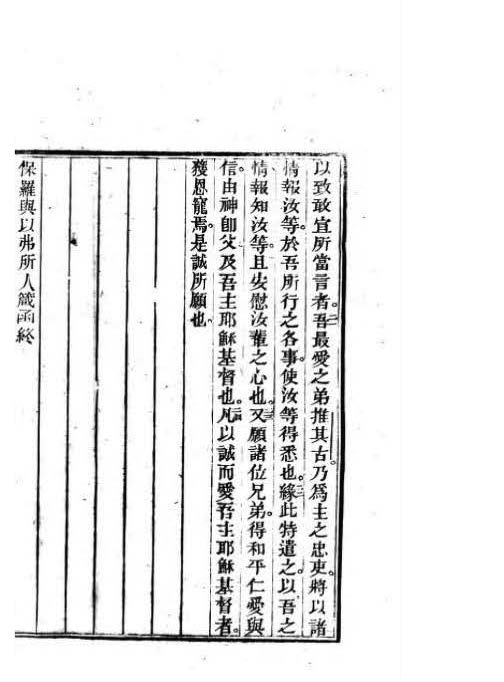 以致敢宜所當言者。三吾最愛之弟推其古乃爲主之忠吏。將以諸
情報汝等於吾所行之各事。使汝等得悉也。三緣此特遣之以吾之
情報知汝等。且安慰汝輩之心也。三又願諸位兄弟。得和平仁愛與
信由神卽父及吾主耶穌基督也。凡以誠而愛吾主耶穌基督者。
獲恩寵焉。是誠所願也。
保羅與以弗所人箴函終